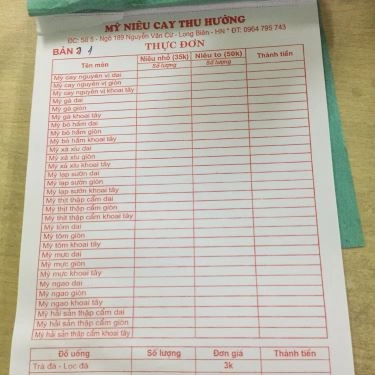 MỲ NIÊU CAY THU HƯỜNG
ĐC: Số 5 - Ngõ 189 Nguyễn Văn Cừ - Long Biên - HN * ĐT: 0964 795 743
BÀN 21 THỰC ĐƠN
Tên món Niêu nhỏ (35k) Niêu to (50k) Thành tiền
Số lượng Số lượng
Mỳ cay nguyên vị dai
Mỳ cay nguyên vị giòn
Mỳ cay nguyên vị khoai tây
Mỳ gà dai
Mỳ gà giòn
Mỳ gà khoai tây
Mỳ bò hầm dai
Mỳ bò hầm giòn
Mỳ bò hầm khoai tây
Mỳ xá xíu dai
Mỳ xá xíu giòn
Mỳ xá xíu khoai tây
Mỳ lạp sườn dai
Mỳ lạp sườn giòn
Mỳ lạp sườn khoai tây
Mỳ thịt thập cẩm dai
Mỳ thịt thập cẩm giòn
Mỳ thịt thập cẩm khoai tây
Mỳ tôm dai
Mỳ tôm giòn
Mỳ tôm khoai tây
Mỳ mực dai
Mỳ mực giòn
Mỳ mực khoai tây
Mỳ ngao dai
Mỳ ngao giòn
Mỳ ngao khoai tây
Mỳ hải sản thập cẩm dai
Mỳ hải sản thập cẩm giòn
Mỳ hải sản thập cẩm khoai tây
Đồ uống Số lượng Đơn giá Thành tiền
Trà đá - Lọc đá 3k